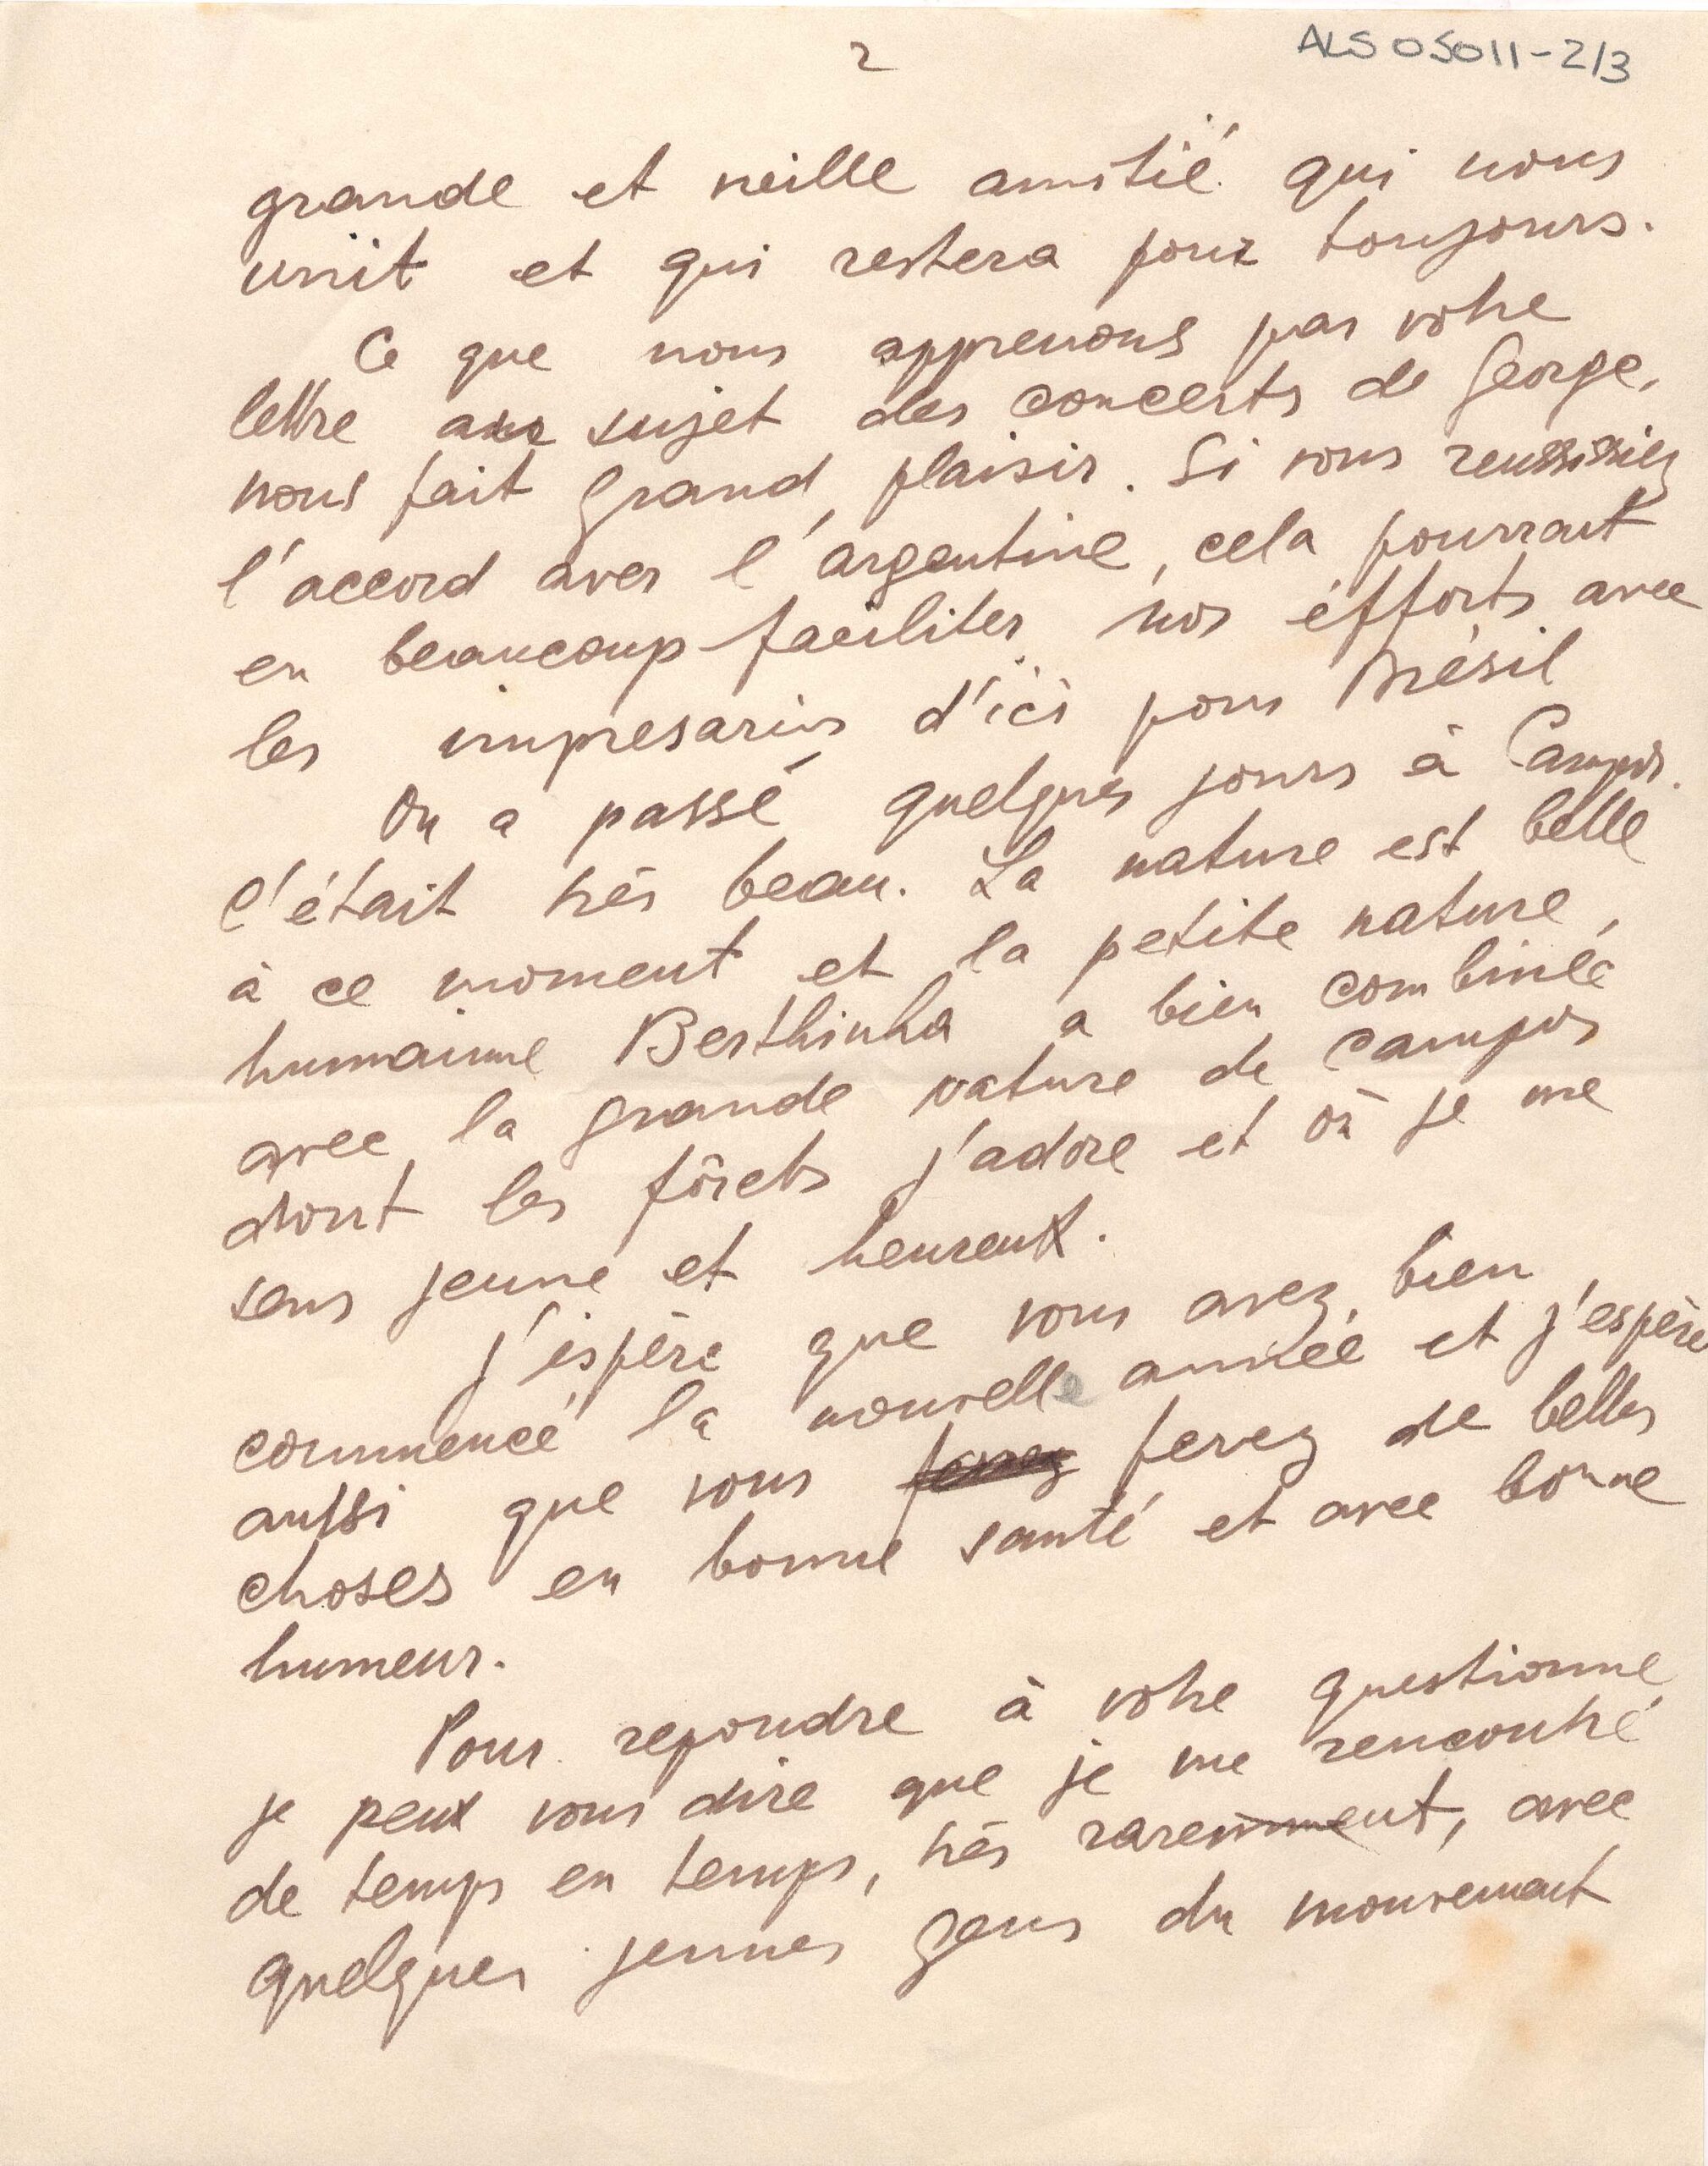 2
ALS 05011-2/3
grande et veille amitié qui nous
unit et qui restera pour toujours.
Ce que nous apprenons par votre
lettre au sujet des concerts de George,
nous fait grand plaisir. Si vous reussissiez
l'accord avec l'argentine, cela pourrait
en beaucoup faciliter nos éfforts avec
les impresarios d'ici pour Brésil
On a passé quelques jours à Campos.
C'était très beau. La nature est belle
à ce moment et la petite nature,
humainne Berthinha a bien combinée
avec la grande nature de Campos
dont les fôrets j'adore et où je me
sens jeune et heureux.
J'éspère que vous avez bien
commencé la nouvelle année et j'espère
aussi que vous ferez de belles
choses en bonne santé et avec bonne
humeur.
Pour repondre à votre questionne,
je peux vous dire que je me rencontré
de temps en temps, très rarement, avec
quelques jeunes gens du mouvement